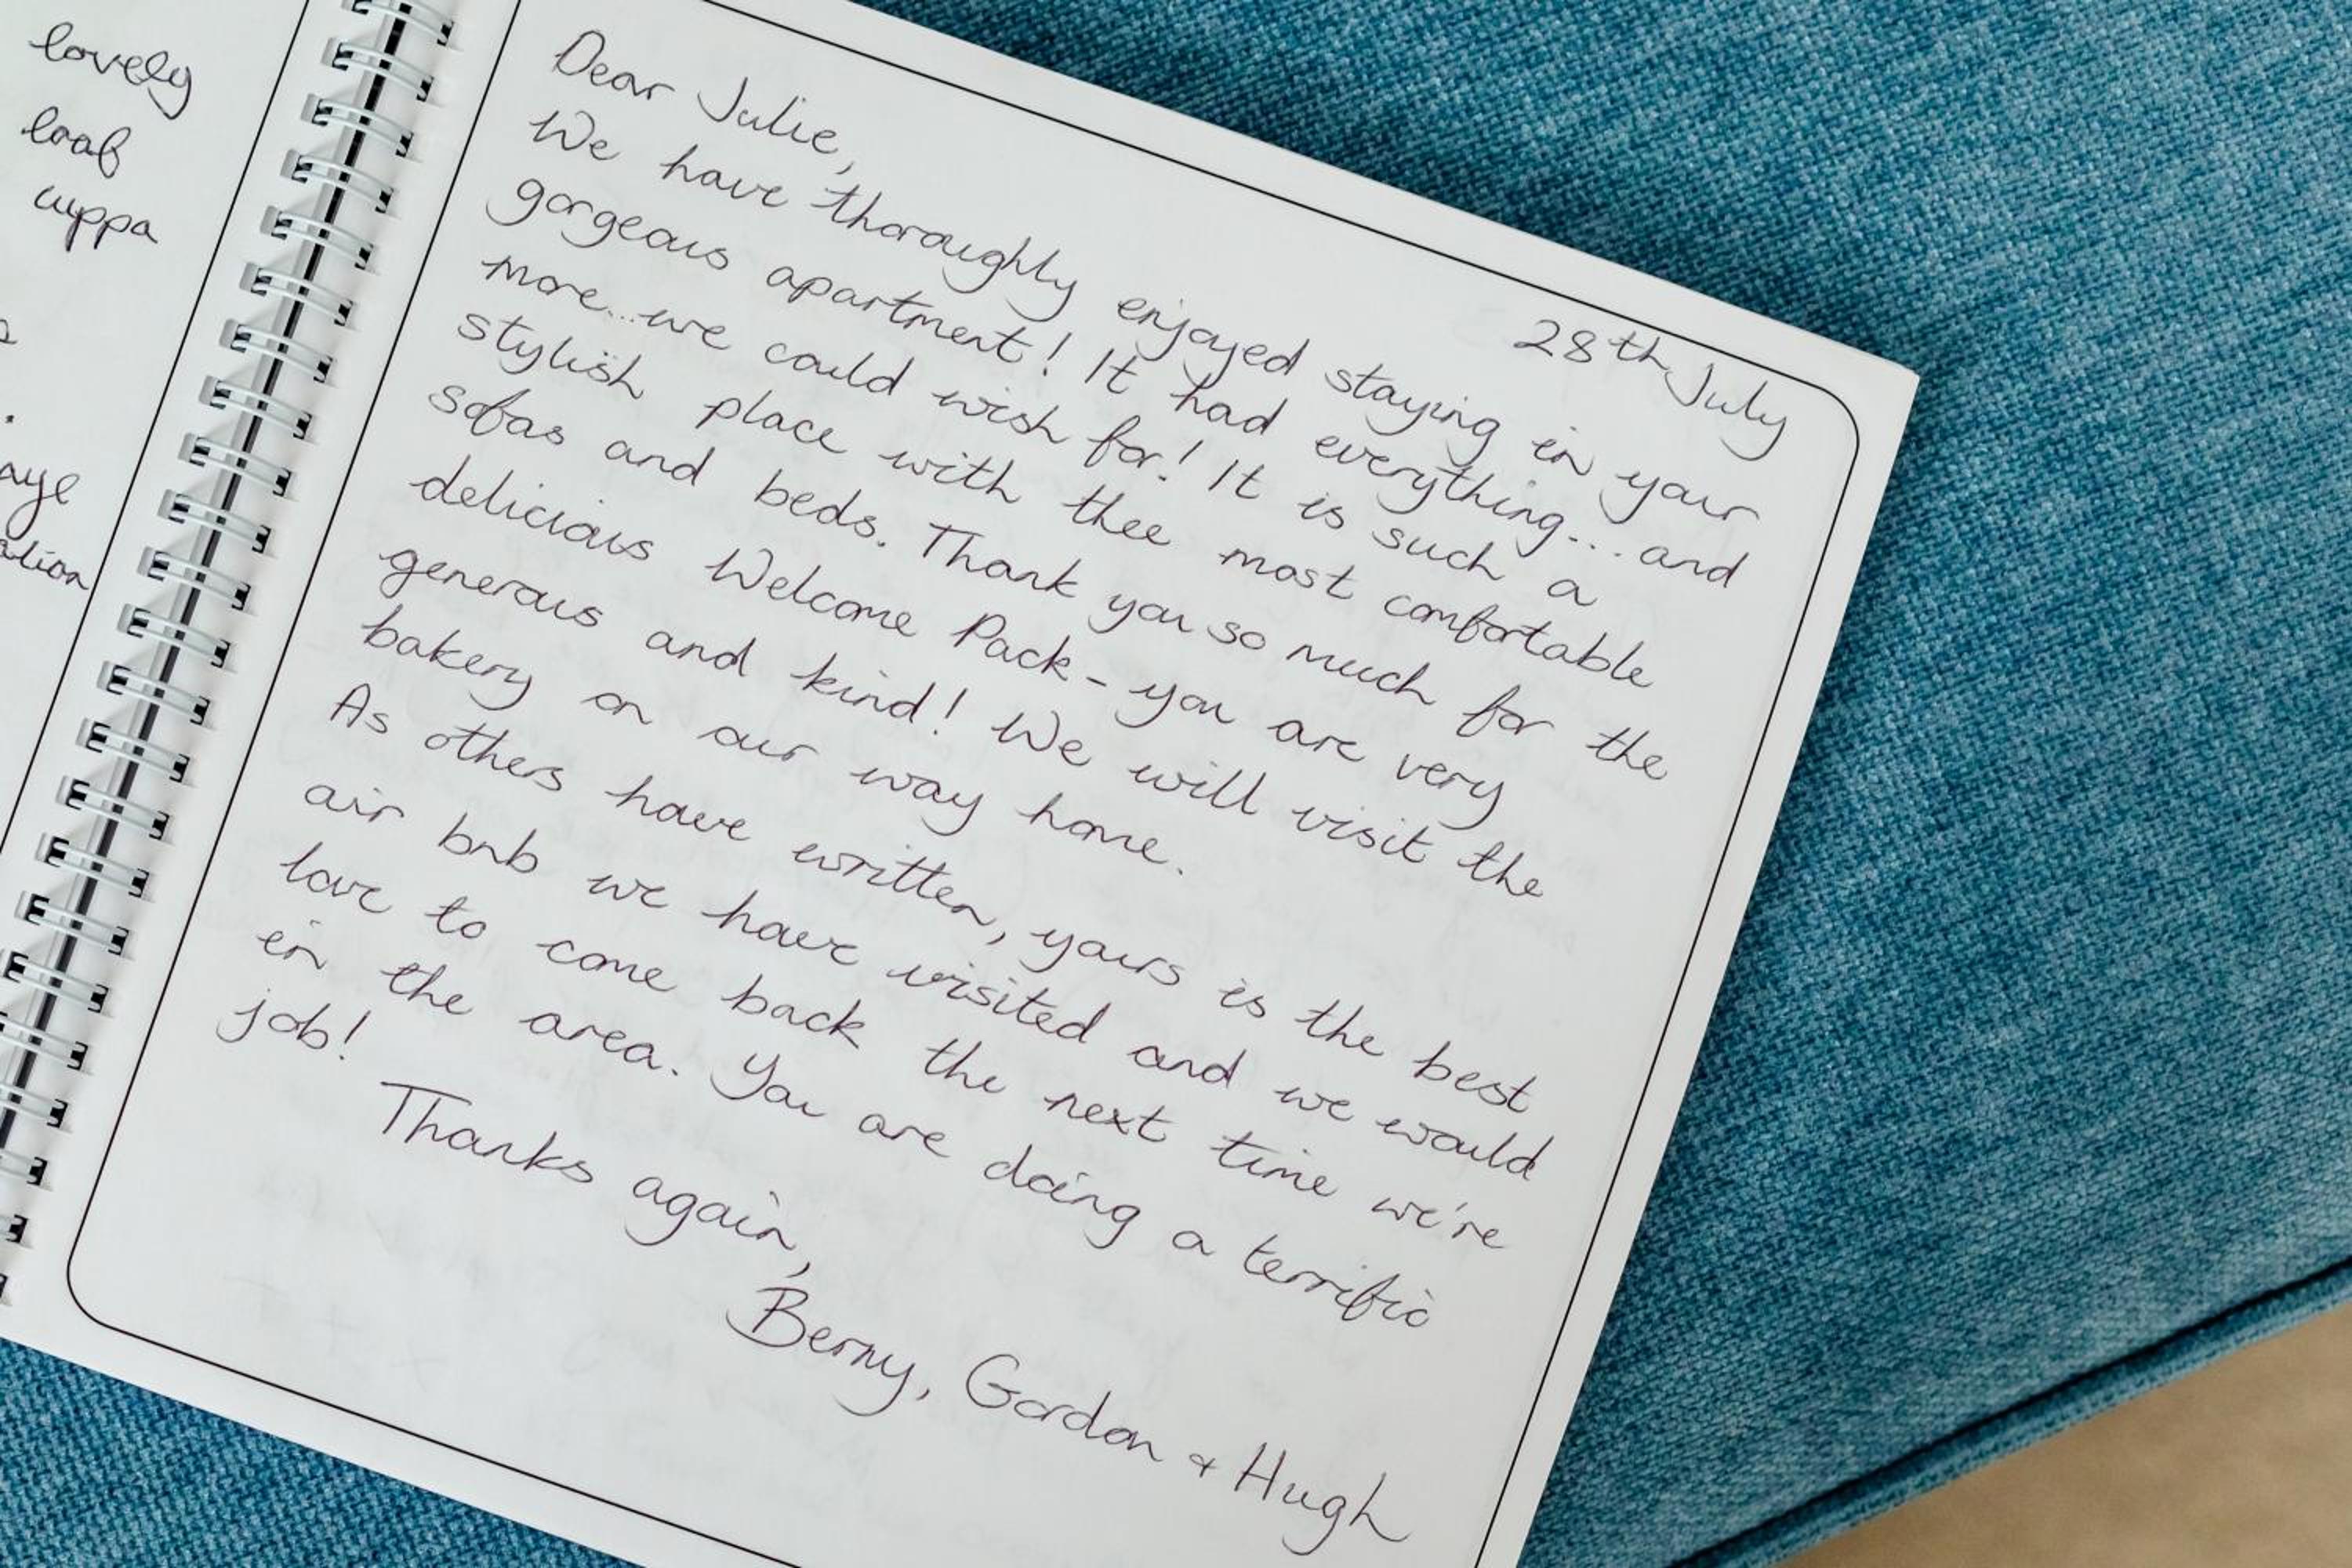 lovely
loaf
cuppa
28th July
Dear Julie,
We have thoroughly enjoyed staying in your
gorgeous apartment! It had everything... and
more... we could wish for! It is such a
stylish place with thee most comfortable
sofas and beds. Thank you so much for the
delicious Welcome Pack - you are very
generous and kind! We will visit the
bakery on our way home.
As others have written, yours is the best
air bnb we have visited and we would
love to come back the next time we're
in the area. You are doing a terrific
job!
Thanks again,
Berny, Gordon + Hugh